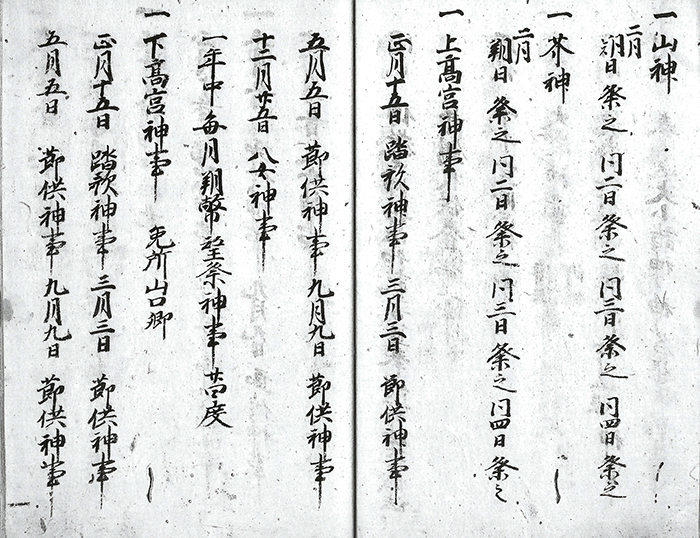 一山神
二月朔日祭之 同二日祭之 同三日祭之 同四日祭之
一芥神
二月朔日祭之 同二日祭之 同三日祭之 同四日祭之
一上高宮神事
正月十五日踏歌神事 三月三日 節供神事
五月五日 節供神事 九月九日 節供神事
十二月廿五日 八女神事
一年中毎月朔幣望祭神事廿四度
一下高宮神事 免所山口郷
正月十五日踏歌神事 三月三日 節供神事
五月五日 節供神事 九月九日 節供神事